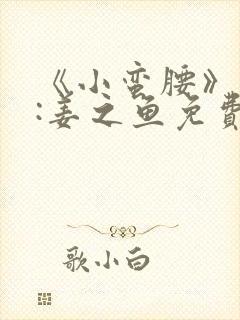 《小蛮腰》
:姜之鱼免費
歌小白